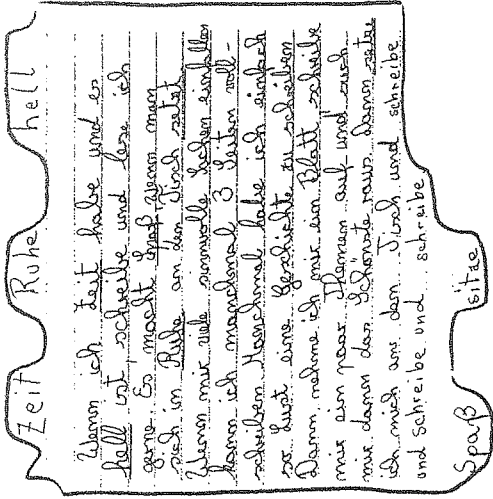 Zeit Ruhe hell
Wenn ich Zeit habe und es
hell ist, schreibe und lese ich
gerne. Es macht Spaß, wenn man
sich in Ruhe an den Tisch setzt.
Wenn mir viele sinnvolle Sachen einfallen
kann ich manchmal 3 Seiten voll-
schreiben. Manchmal habe ich einfach
so Lust eine Geschichte zu schreiben
Dann nehme ich mir ein Blatt schreibe
mir ein paar Themen auf und such
mir dann das Schönste raus. Dann sitze
ich mich an den Tisch und schreibe
und schreibe und schreibe
Spaß sitze